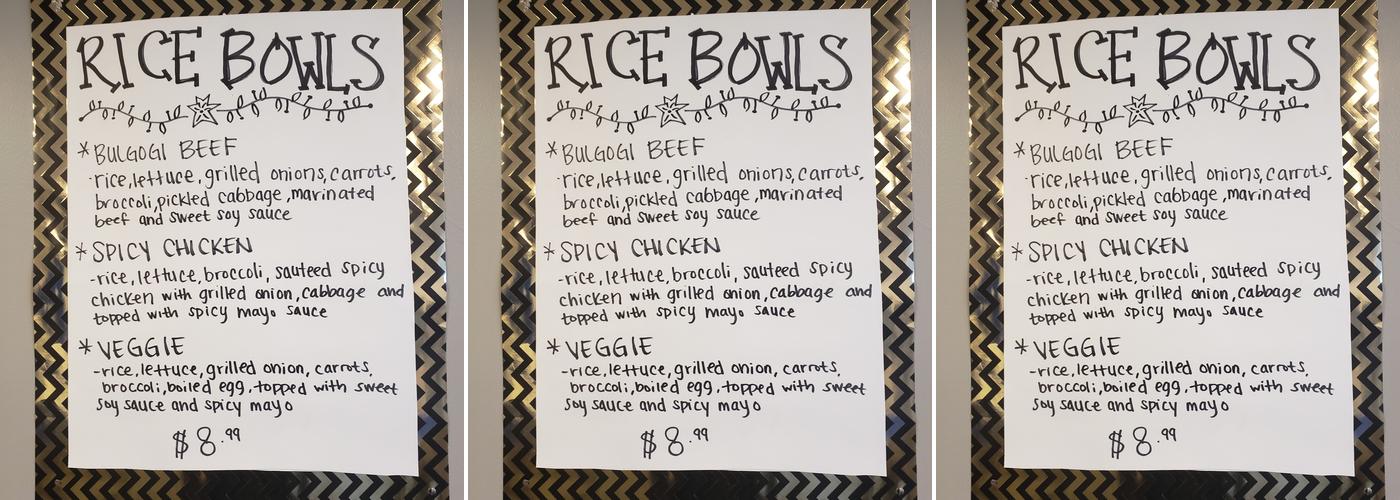 RICE BOWLS
* BULGOGI BEEF
-rice, lettuce, grilled onions, carrots,
broccoli, pickled cabbage, marinated
beef and sweet soy sauce
* SPICY CHICKEN
-rice, lettuce, broccoli, sauteed spicy
chicken with grilled onion, cabbage and
topped with spicy mayo sauce
* VEGGIE
-rice, lettuce, grilled onion, carrots,
broccoli, boiled egg, topped with sweet
soy sauce and spicy mayo
$8.99
RICE BOWLS
* BULGOGI BEEF
-rice, lettuce, grilled onions, carrots,
broccoli, pickled cabbage, marinated
beef and sweet soy sauce
* SPICY CHICKEN
-rice, lettuce, broccoli, sauteed spicy
chicken with grilled onion, cabbage and
topped with spicy mayo sauce
* VEGGIE
-rice, lettuce, grilled onion, carrots,
broccoli, boiled egg, topped with sweet
soy sauce and spicy mayo
$8.99
RICE BOWLS
* BULGOGI BEEF
-rice, lettuce, grilled onions, carrots,
broccoli, pickled cabbage, marinated
beef and sweet soy sauce
* SPICY CHICKEN
-rice, lettuce, broccoli, sauteed spicy
chicken with grilled onion, cabbage and
topped with spicy mayo sauce
* VEGGIE
-rice, lettuce, grilled onion, carrots,
broccoli, boiled egg, topped with sweet
soy sauce and spicy mayo
$8.99